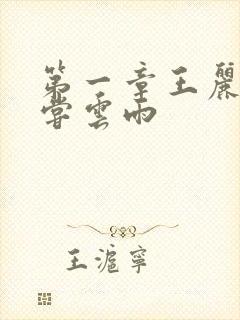 第一章王麗
嘗雲雨
王滬寧